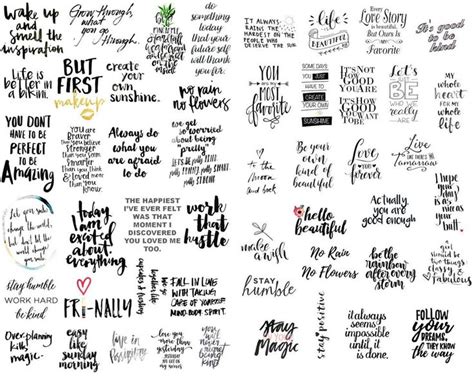 wake up
and
smell the
inspiration
Grow through
what you
go through.
do
something
today
that your
future self
will thank
you for.
IT ALWAYS
RAINS THE
HARDEST ON
THE PEOPLE
WHO DESERVE
THE SUN.
life
is
BEAUTIFUL
Every
Love Story
is Beautiful
But Ours is
my
Favorite
It's good
to be
kind
Life is
better in
a bikini.
BUT
FIRST
makeup
create
your own
sunshine.
no rain
no flowers
YOU
ARE MY
MOST
favorite
SOME DAYS
YOU JUST
HAVE TO
CREATE
YOUR OWN
SUNSHINE
IT'S HOW
GOOD
YOU ARE
IT'S HOW
GOOD YOU
WANT
TO BE.
Let's
BE
WHO WE
REALLY
ARE
MY
whole
heart
FOR MY
whole
life
YOU DON'T
HAVE TO BE
PERFECT
TO BE
AMAZING
you are
Braver
than you believe
Stronger
than you seem
Smarter
than you think
& Loved more
than you
know.
Always do
what you
are afraid
to do
we get
so worried
about being
"pretty"
let's be
pretty kind
pretty funny
pretty smart
pretty strong
to the
Moon
and back
Be your
own
kind of
beautiful
Love
you
forever
Live
like there's no
tomorrow
today
i am
excited
about
everything.
THE HAPPIEST
I'VE EVER FELT
WAS THAT
MOMENT I
DISCOVERED
YOU LOVED ME
TOO.
work
that
hustle
make a
wish
hello
beautiful
Actually
you are
good enough
stay humble
WORK HARD
be kind
FRI-NALLY
cupcakes &
FALL IN LOVE
WITH TAKING
CARE OF YOURSELF
MIND BODY SPIRIT
STAY
humble
No Rain
No Flowers
be the
rainbow
after every
storm
should be
two things
classy &
fabulous
Over-planning
kills
magic.
easy
like
sunday
morning
love you
more than
yesterday
stay
Magic
stay positive
it always
seems
impossible
until it
is done.
FOLLOW
your
DREAMS,
THEY KNOW
the way